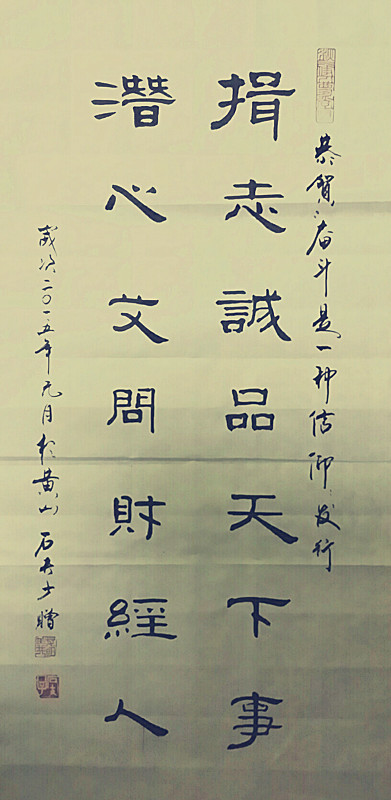 恭賀“奋斗是一种信仰”发行
揖志誠品天下事
潛心艾問財經人
歲次二〇一五年元月於黄山 石